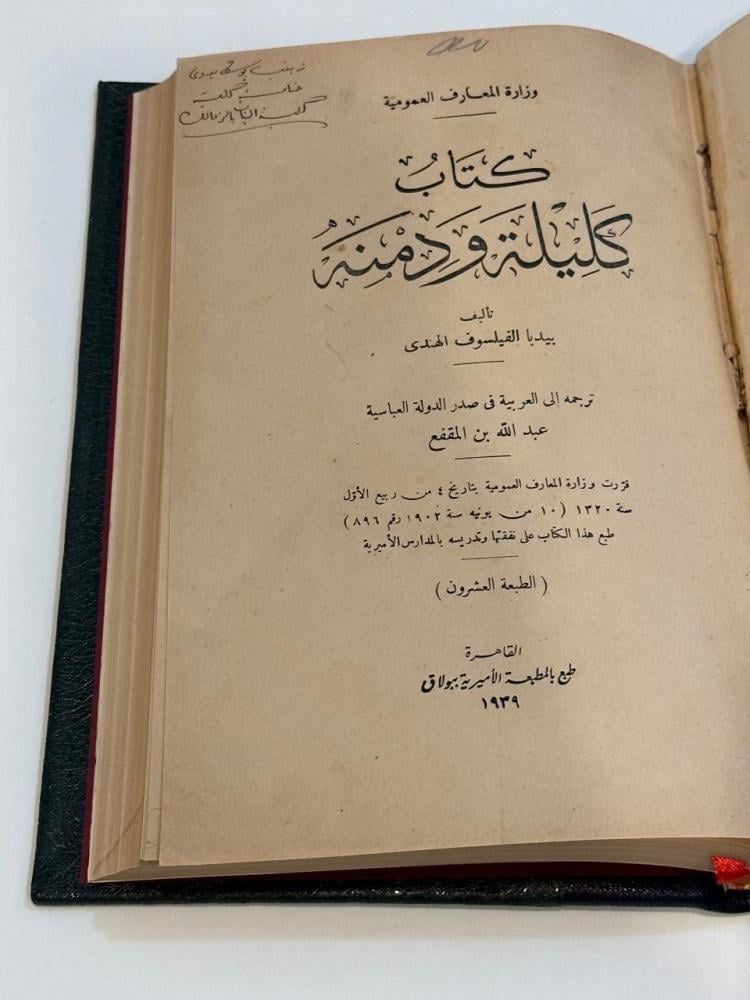 وزارة المعارف العمومية
كتابُ
كَلِيْلَة وَدِمْنَهْ
تأليف
بيدبا الفيلسوف الهندى
ترجمه الى العربية فى صدر الدولة العباسية
عبد الله بن المقفع
قرّرت وزارة المعارف العمومية بتاريخ ٤ من ربيع الأوّل
سنة ١٣٢٠ (١٠ من يونيه سنة ١٩٠٢ رقم ٨٩٦)
طبع هذا الكتاب على نفقتها وتدريسه بالمدارس الأميرية
(الطبعة العشرون)
القاهرة
طبع بالمطبعة الأميرية ببولاق
١٩٣٩